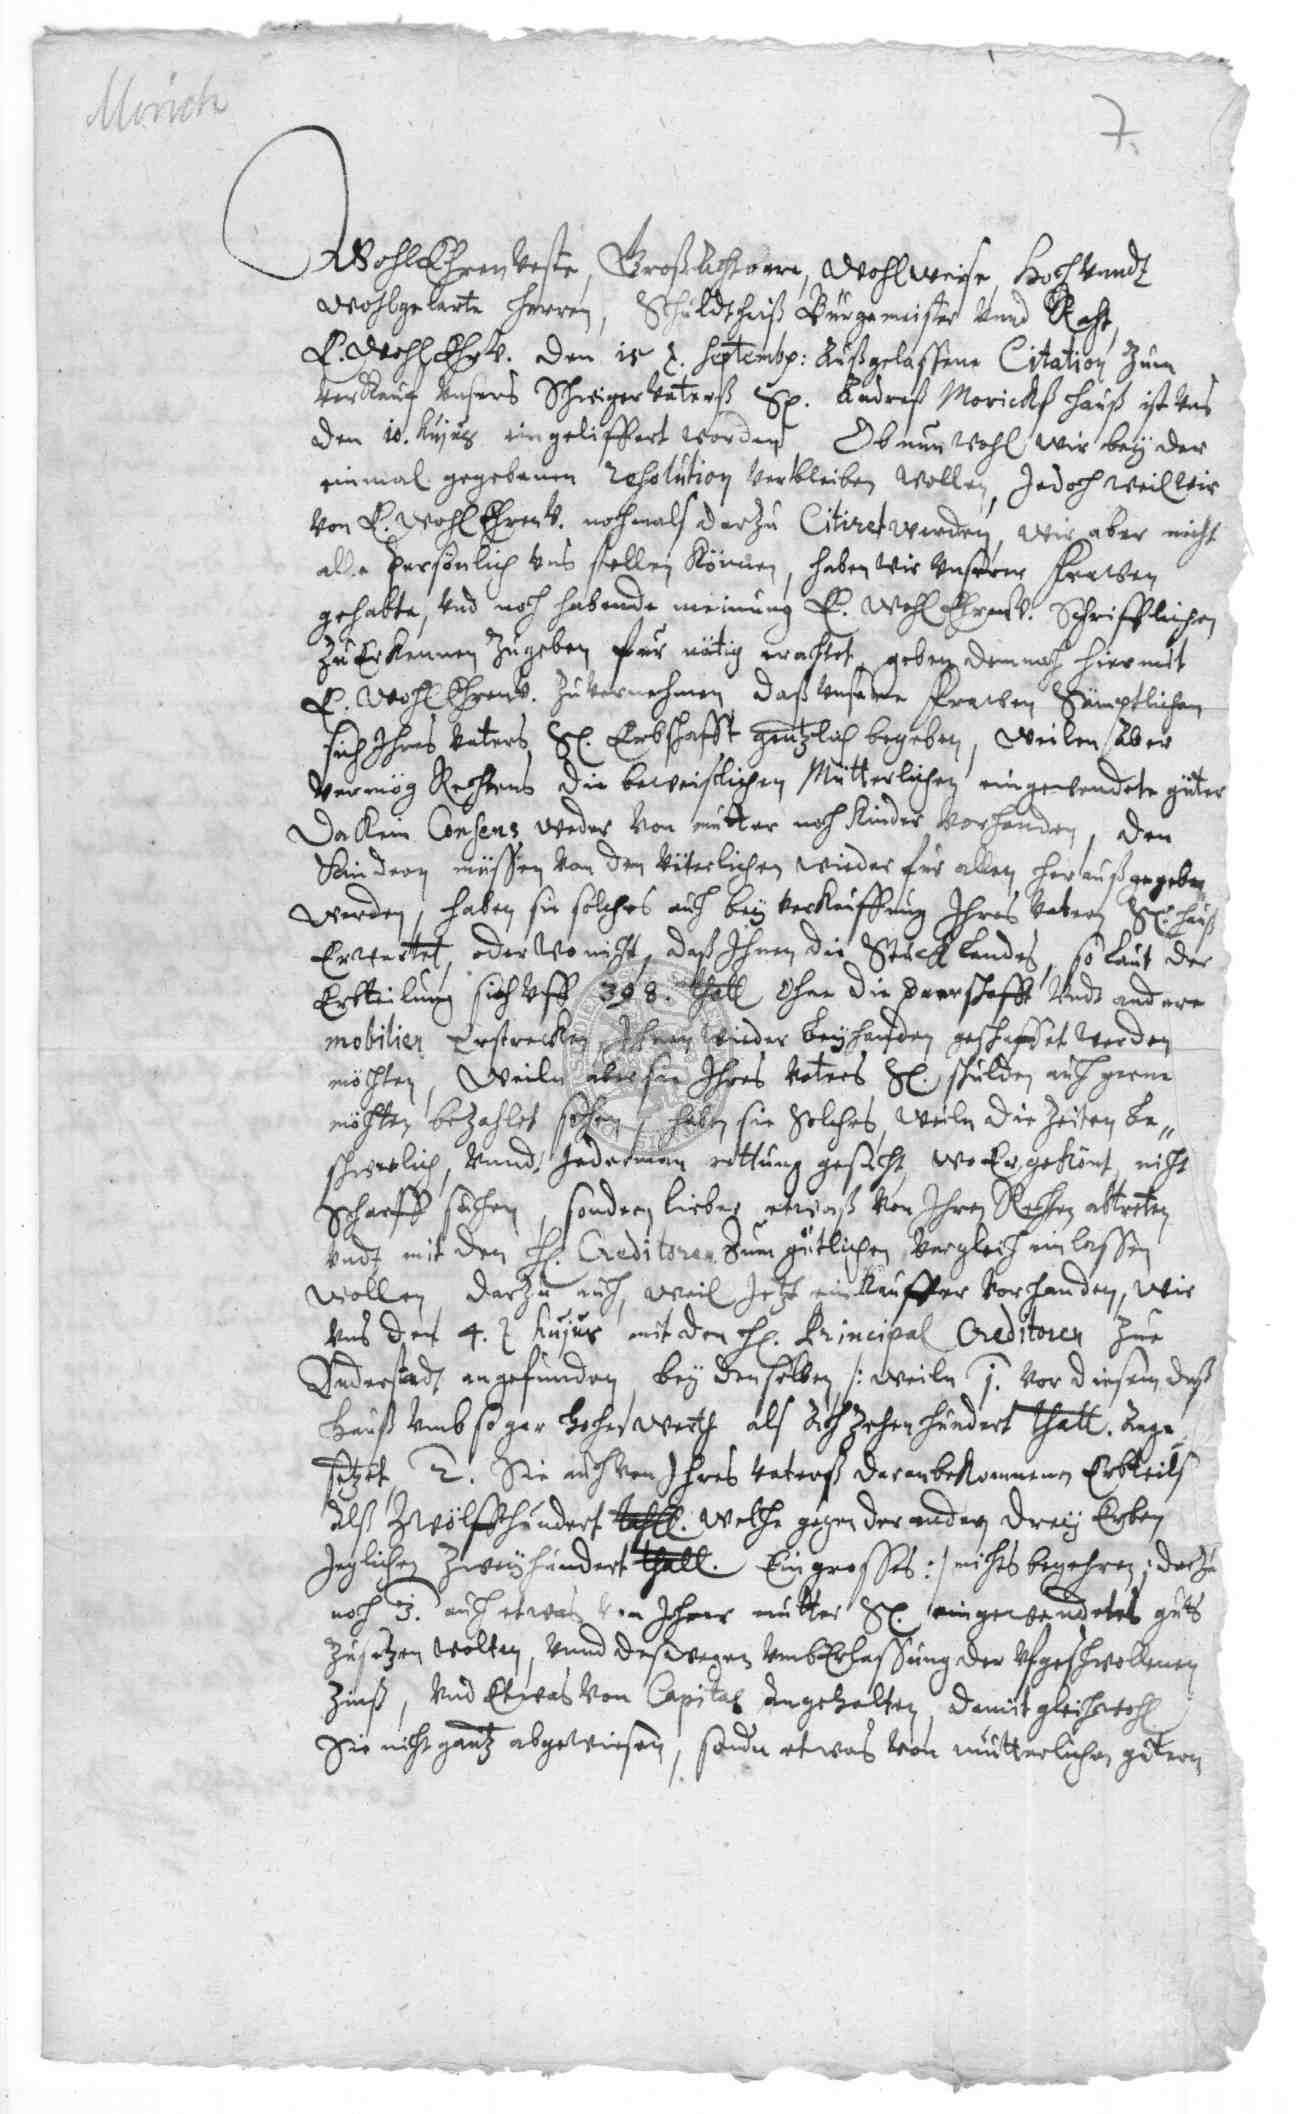 Morich
7.
WohlEhrenVeste, Großachtbare, Wohlweise, Hoch Vnndt
Wohlgelarte Herren, Schuldtheiß, Bürgemeister Vnnd Raht,
E. WohlEhrV. den 15 7. Septembr: Außgelassene Citation Zum
Verkauf Vnsers SchwigerVaterß Sel. Andreß Morickß Hauß ist Vns
den 10. hujus eingeliffert worden Ob nun Wohl wir beÿ der
einmal gegebenen resolution Verbleiben Wollen, Jedoch weil wir
von E. WohlEhrenV. nochmals darzu Citiret werden, wir aber nicht
alle persönlich vns stellen Können, haben wir Vnserer Frawen
gehabte, Vnd noch habende meinung E. WohlEhrenV. Schrifftlichen
Zu erKennen Zugeben für nötig erachtet, geben demnach hiermit
E. WohlEhrenV. ZuVernehmen daß Vnsere Frawen Sämptlichen
sich Ihres Vaters Sel. Erbschafft gentzlich begeben, Weilen Aber
Vermög Rechtens die beweißlichen Mütterlichen eingewendete güter
Da Kein Consens weder Von mutter noch Kinder Vorhanden, den
Kindern müssen Von den Väterlichen wieder für allen heraußgegeben
werden, haben sie solches auch beÿ verKauffung Ihres Vatern Sel. Hauß
Erwartet, oder Wo nicht, daß Ihnen die Stuck Landes, so laut der
Erbteilung sich Vff 398. thall ohne die paarschafft Vndt andere
mobilien Erstrecken, Ihnen wieder beÿhanden geschaffet werden
möchten, Weiln aber sie Ihres Vaters Sel. schulden auch gerne
möchten bezahlet sehen, haben sie Solches, Weiln die Zeiten be„
schwerlich, Vnndt Jederman rettung gesucht, wo Er geKönt, nicht
Scharff suchen, sondern lieber etwaß Von Ihren Rechten abtreten
Vndt mit den H. Creditoren Zum gütlichen Vergleich einlassen
Wollen, darzu auch, Weil Jetzt ein Kauffer Vorhanden, wir
Vns den 4. 7 hujus mit den H. Principal Creditoren Zue
Anderstadt angefunden, beÿ denselben /: Weiln 1. Vor diesem daß
Hauß Vmb so gar hohes werth als Achtzehenhundert thall. Ange
setzet, 2. Sie auch von Ihres Vaterß daran beKommenen Erbteils
alß Zwölffhundert thall. Welche gegen der andern dreÿ Erben
Jeglichen Zweÿhundert thall. Ein grosses :/ nichts begehren, darzu
noch 3. auch etwas Von Ihrer mutter Sel. eingewendetes guts
Zusetzen wolten, Vnnd deswegen Vmb Erlassung der Vfgeschwollenen
Zinß, Vnd Etwas Von Capital Angehalten, damit gleichwohl
Sie nicht gantz abgewiesen, sondern etwas Von mütterlichen gütern